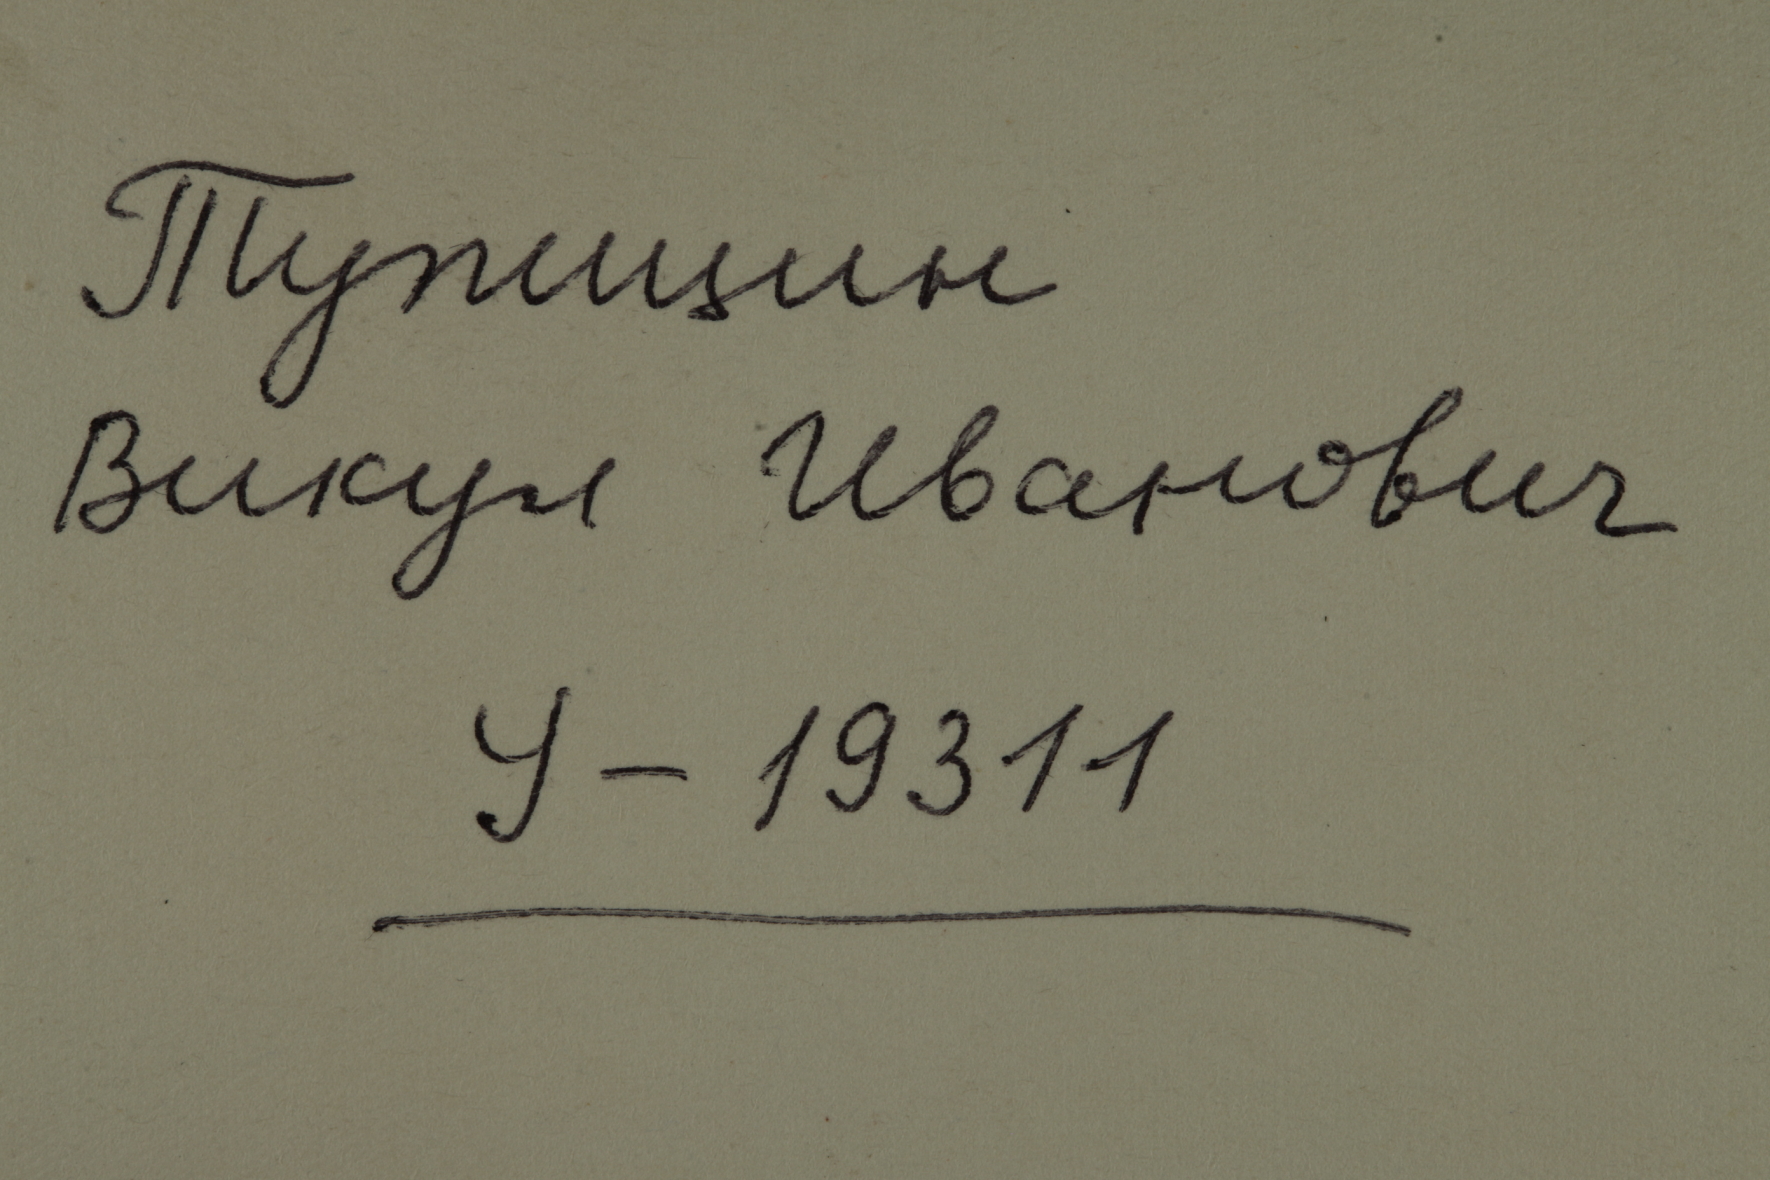 Тупицин
Викул Иванович
У - 19311